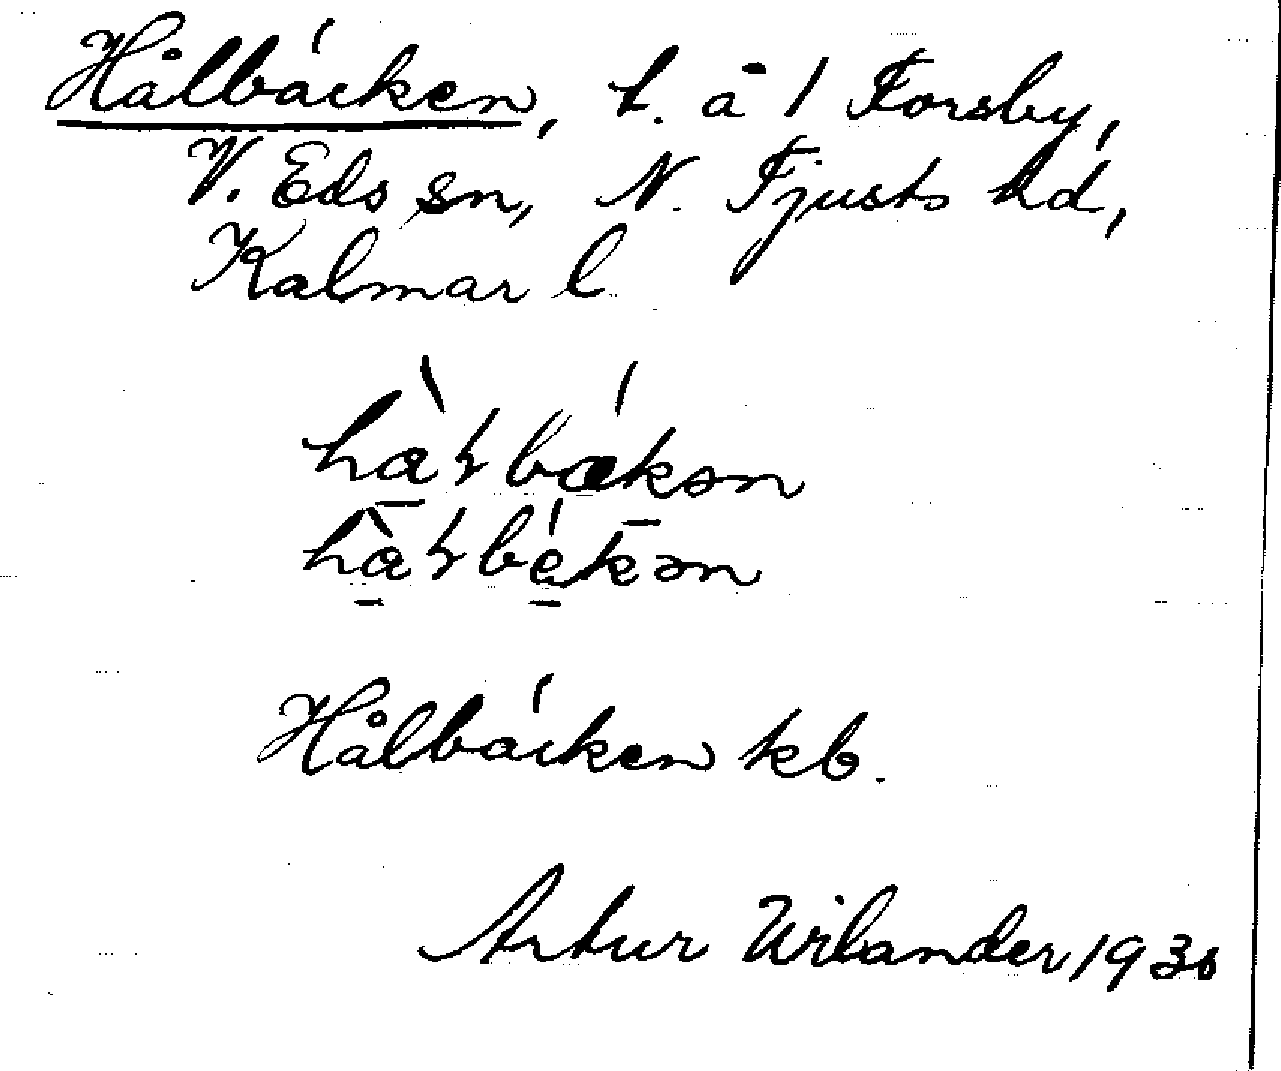 Hålbäcken, t. å 1 Forsby,
V. Eds sn, N. Tjusts hd,
Kalmar l
Hålbäcken kb.
Artur Wilander 1930